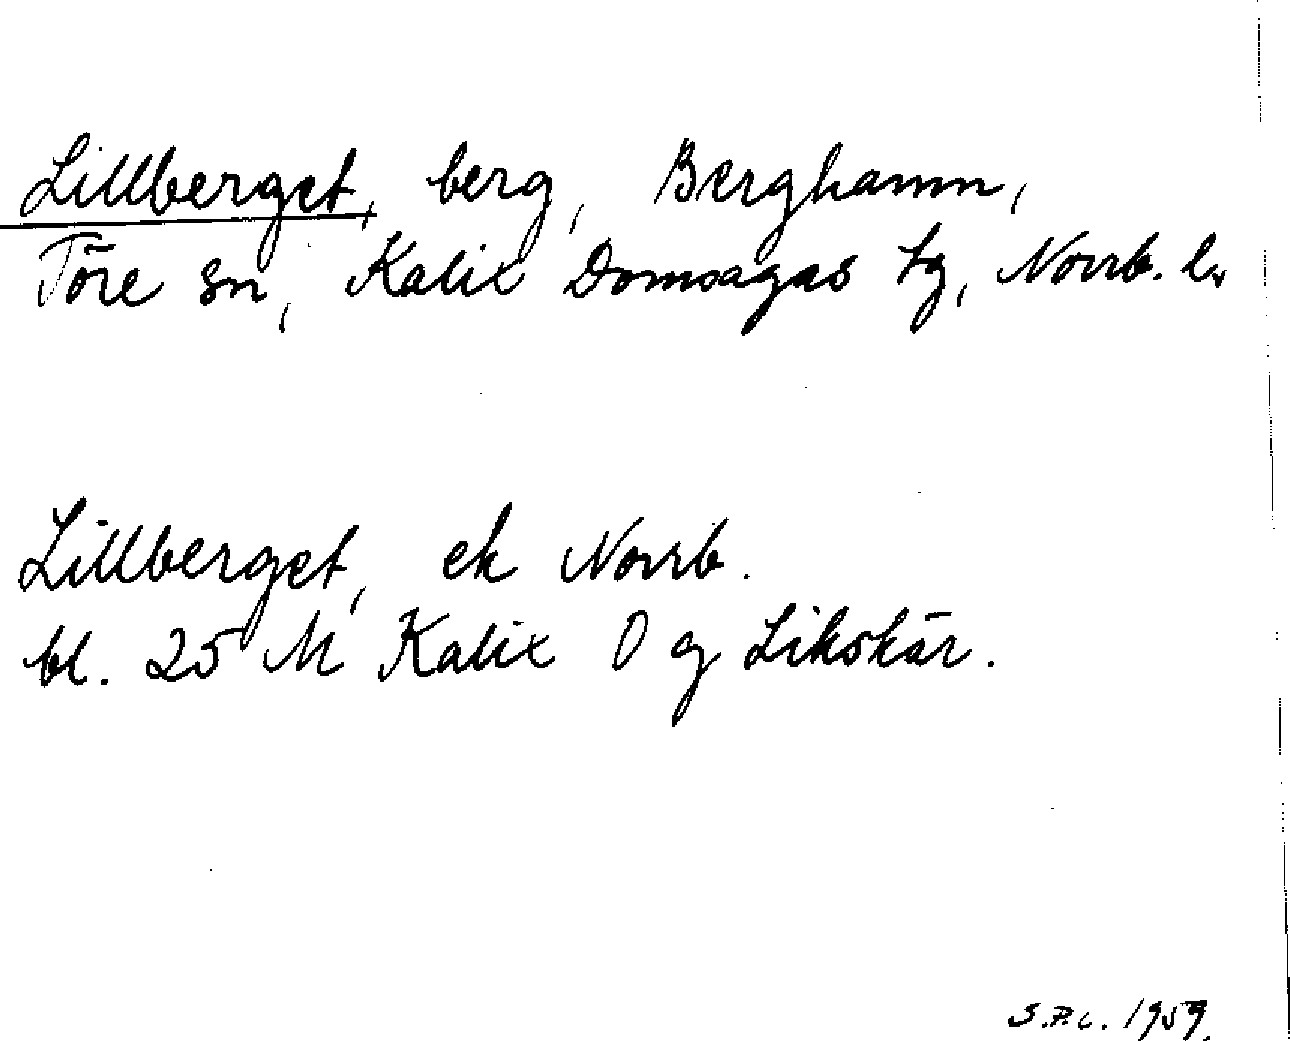 Lillberget, berg, Berghamn,
Töre sn, Kalix Domsagas tg, Norrb. l.
Lillberget, ek Norrb.
bl. 25 M Kalix O g Likskär.
S.P.C. 1959.